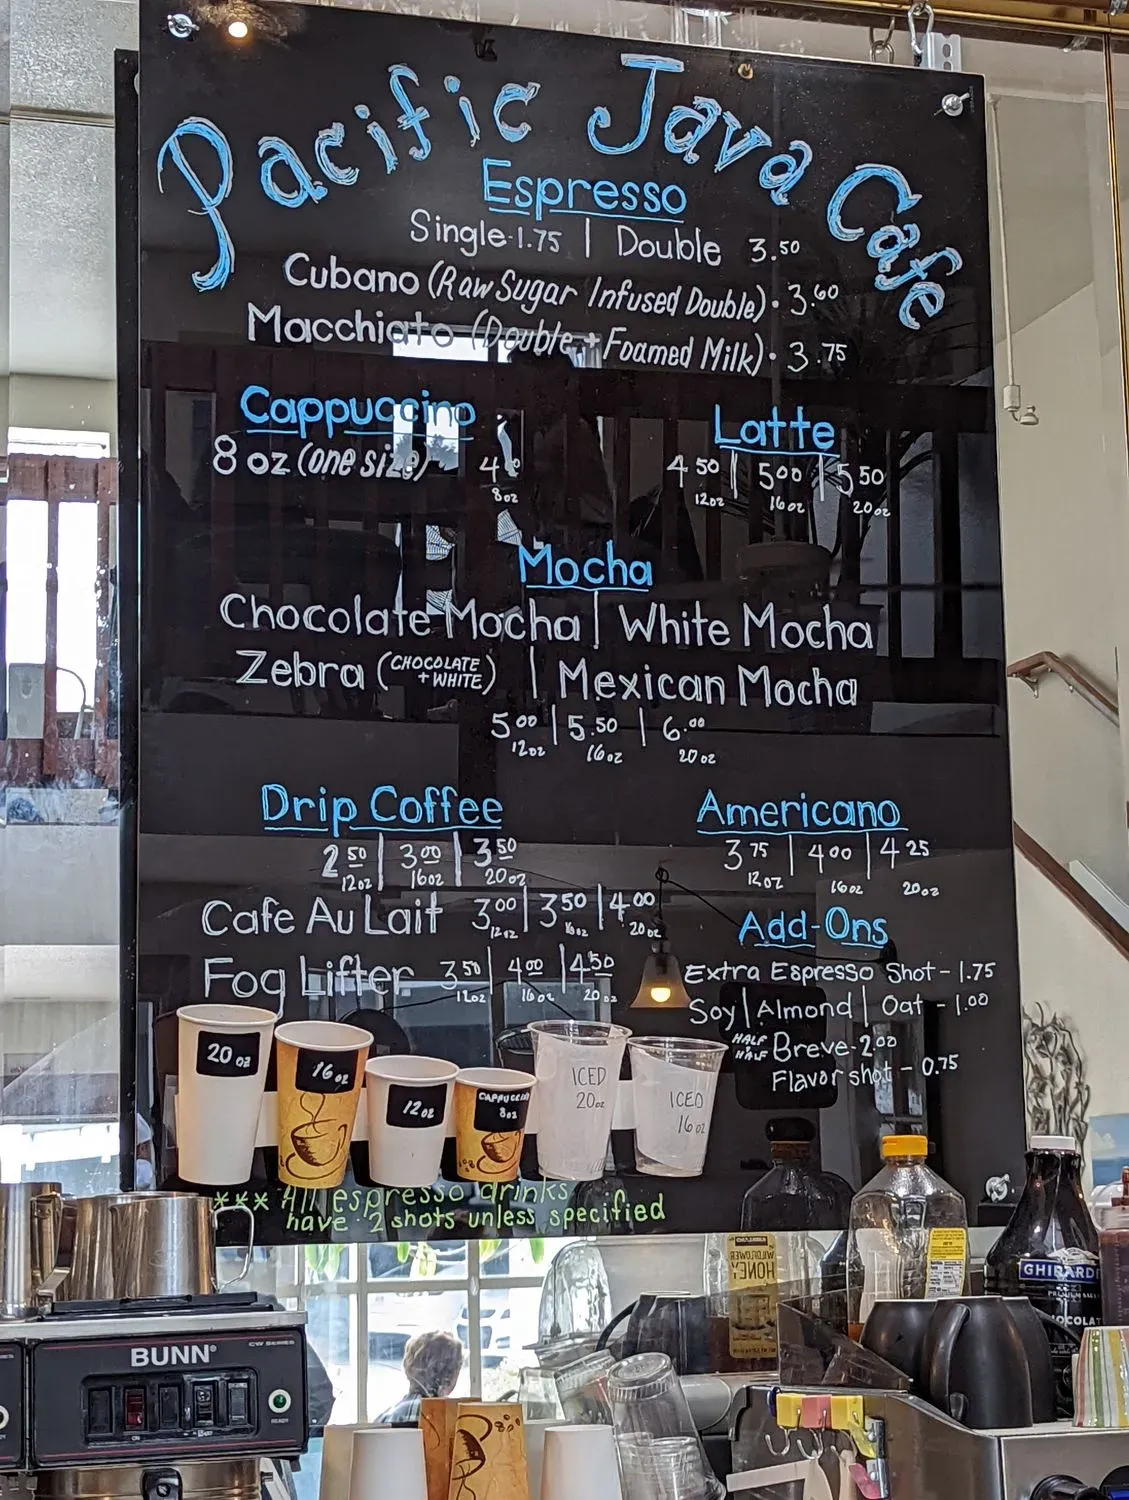 Pacific Java Cafe
Espresso
Single-1.75 | Double 3.50
Cubano (Raw Sugar Infused Double)・3.60
Macchiato (Double + Foamed Milk)・3.75
Cappuccino
8 oz (one size)
8oz
Latte
4 50 | 5 00 | 5 50
12oz 16oz 20oz
Mocha
Chocolate Mocha | White Mocha
Zebra (CHOCOLATE + WHITE) | Mexican Mocha
5 00 | 5.50 | 6.00
12oz 16oz 20oz
Drip Coffee
2 50 | 3 00 | 3 50
12oz 16oz 20oz
Cafe Au Lait 3 00 | 3 50 | 4 00
12oz 16oz 20oz
Fog Lifter 3 50 | 4 00 | 4 50
12oz 16oz 20oz
Americano
3 75 | 4 00 | 4 25
12oz 16oz 20oz
Add-Ons
Extra Espresso Shot - 1.75
Soy | Almond | Oat - 1.00
HALF + HALF Breve - 2 00
Flavor shot - 0.75
20 oz
16oz
12oz
CAPPUCCINO
8oz
ICED
20oz
ICED
16oz
*** All espresso drinks
have 2 shots unless specified
BUNN
CW SERIES
READY
WILDFLOWER
HONEY
GHIRARDE
PREMIUM